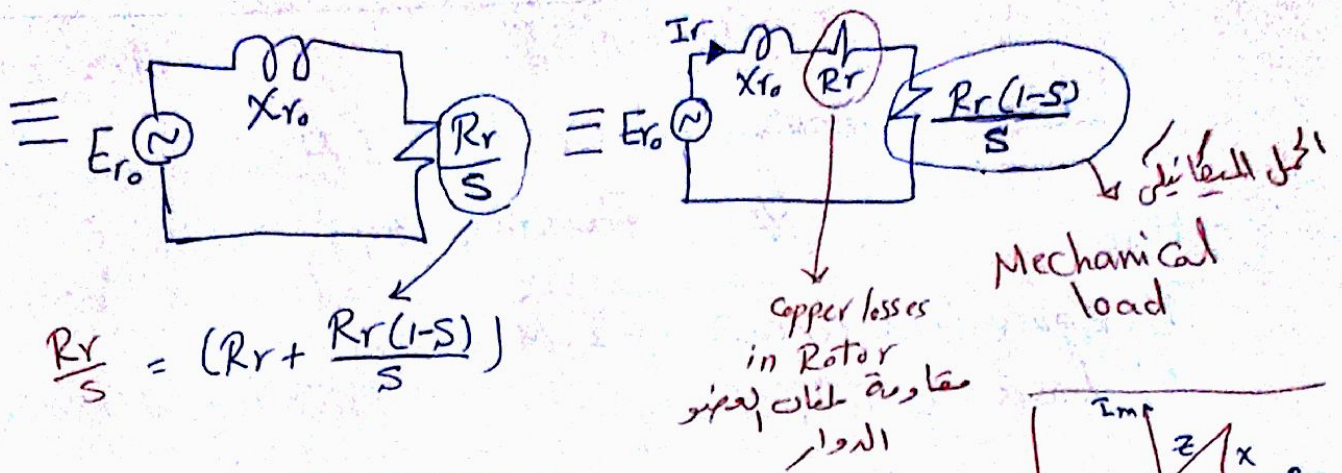 ≡ Er₀ ~ Xr₀ Rr/S
≡ Er₀ ~ Ir Xr₀ Rr Rr(1-S)/S
Rr/S = (Rr + Rr(1-S)/S)
الحمل الميكانيكي
Mechanical
load
Copper losses
in Rotor
مقاومة ملفات العضو
الدوار
Im
Z X